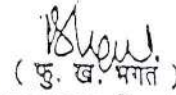 ( फु. ख. भगत )